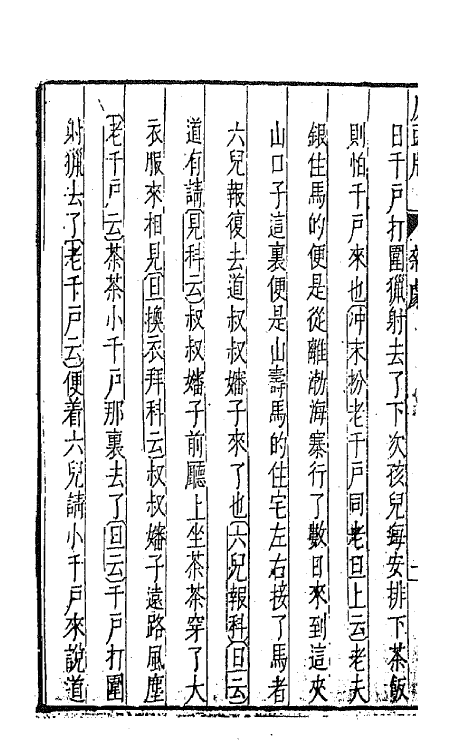 日千户打圍獵射去了下次孩兒每安排下茶飯
則怕千户來也冲末扮老千户同老旦上云老夫
銀住馬的便是從離渤海寨行了數日來到這夾
山口子這裏便是山壽馬的住宅左右接了馬者
六兒報復去道叔叔嬸子來了也六兒報科旦云
道有請見科云叔叔嬸子前廳上坐茶茶穿了大
衣服來相見旦換衣拜科云叔叔嬸子遠路風塵
老千户云茶茶小千户那裏去了旦云千户打圍
射獵去了老千户云便着六兒請小千户來說道